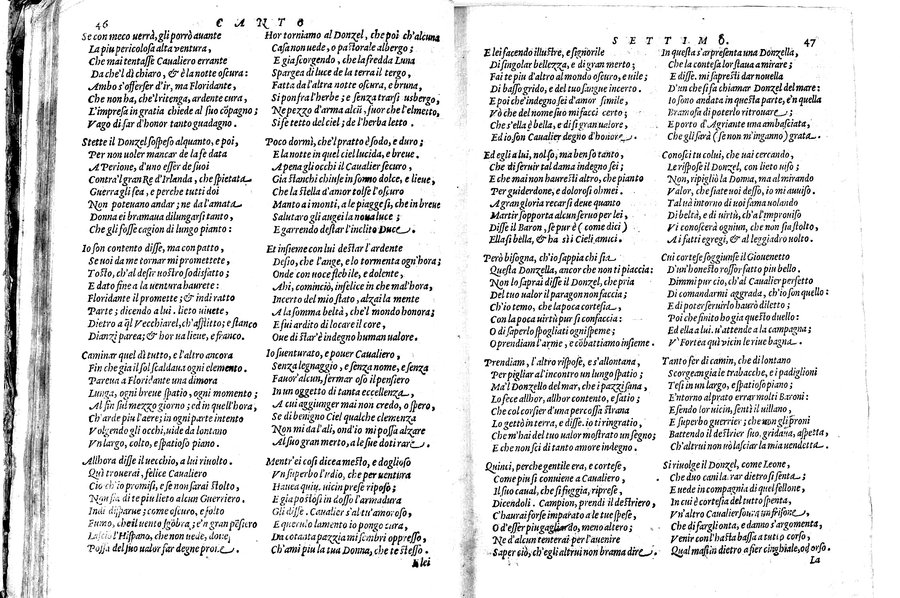 46 CANTO
Se con meco uerrà, gli porrò auante
La piu pericolosa alta ventura,
Che mai tentasse Caualiero errante
Da che'l dì chiaro, & è la notte oscura:
Ambo s'offerser d'ir, ma Floridante,
Che non ha, che'l ritenga, ardente cura,
L'impresa in gratia chiede al suo cōpagno;
Vago di far d'honor tanto guadagno.
Stette il Donzel sospeso alquanto, e poi,
Per non uoler mancar de la fe data
A Perione, d'uno esser de suoi
Contra'l gran Re d'Irlanda, che spietata
Guerra gli fea, e perche tutti doi
Non poteuano andar; ne da l'amata
Donna ei bramaua dilungarsi tanto,
Che gli fosse cagion di lungo pianto:
Io son contento disse, ma con patto,
Se uoi da me tornar mi promettete,
Tosto, ch'al desir uostro sodisfatto;
E dato fine a la uentura haurete:
Floridante il promette; & indi ratto
Parte; dicendo a lui. lieto uiuete,
Dietro a q̄l Vecchiarel, ch'afflitto; e stanco
Dianzi parea; & hor ua lieue, e franco.
Caminar quel dì tutto, e l'altro ancora
Fin che gia il sol scaldaua ogni clemento.
Pareua a Floridante una dimora
Lunga, ogni breue spatio, ogni momento;
Al fin sul mezzo giorno; ed in quell'hora,
Ch'arde piu l'aere; in ogni parte intento
Volgendo gli occhi, uide da lontano
Vn largo, colto, e spatioso piano.
Allhora disse il uecchio, a lui riuolto.
Quì trouerai, felice Caualiero
Cio ch'io promisi, e se non sarai stolto,
Non sia di te piu lieto alcun Guerriero.
Indi disparue; come oscuro, e folto
Fumo, che il uento sgōbra; e'n gran pēsiero
Lasciò l'Hispano, che non uede, doue,
Possa del suo ualor far degne proue.
Hor torniamo al Donzel, che poi ch'alcuna
Casa non uede, o pastorale albergo;
E gia scorgendo, che la fredda Luna
Spargea di luce de la terra il tergo,
Fatta da l'altra notte oscura, e bruna,
Si pon fra l'herbe; e senza trarsi usbergo,
Ne pezzo d'arma alcū, fuor che l'elmetto,
Si fe tetto del ciel; de l'herba letto.
Poco dormì, che'l pratto è sodo, e duro;
E la notte in quel ciel lucida, e breue.
A pena gli occhi il Caualier securo,
Gia stanchi chiuse in sonno dolce, e lieue,
Che la stella d'amor tolse l'oscuro
Manto a i monti, a le piagge si, che in breue
Salutaro gli augei la noua luce;
E garrendo destar l'inclito Duce.
Et insieme con lui destar l'ardente
Desio, che l'ange, e lo tormenta ogn'hora;
Onde con uoce flebile, e dolente,
Ahi, cominciò, infelice in che mal'hora,
Incerto del mio stato, alzai la mente
A la somma beltà, che'l mondo honora;
E fui ardito di locare il core,
Oue di star'è indegno human ualore.
Io suenturato, e pouer Caualiero,
Senza legnaggio, e senza nome, e senza
Fauor'alcun, fermar oso il pensiero
In un oggetto di tanta eccellenza,
A cui aggiunger mai non credo, o spero,
Se di benigno Ciel qualche clemenza
Non mi da l'ali, ond'io mi possa alzare
Al suo gran merto, a le sue doti rare.
Mentr'ei cosi dicea mesto, e doglioso
Vn superbo l'udio, che per uentura
Hauea quiui uicin prese riposo;
E gia postosi in dosso l'armadura
Gli disse. Caualier s'al tu'amoroso,
E querulo lamento io pongo cura,
Da cotanta pazzia mi sembri oppresso,
Ch'ami piu la tua Donna, che te stesso.
Nei
SETTIMO. 47
E lei facendo illustre, e signorile
Di singolar bellezza, e di gran merto;
Fai te piu d'altro al mondo oscuro, e uile;
Di basso grido, e del tuo sangue incerto.
E poi che indegno sei d'amor simile,
Vò che del nome suo mi facci certo;
Che s'ella è bella, e di si gran ualore,
Ed io son Caualier degno d'honore.
Ed egli a lui, nol so, ma ben so tanto,
Che di seruir tal dama indegno sei;
E che mai non hauresti altro, che pianto
Per guiderdone, e dolorosi ohmei.
A gran gloria recarsi deue quanto
Martir sopporta alcun seruo per lei,
Disse il Baron, se pur è (come dici)
Ella si bella, & ha si i Cieli amici.
Però bisogna, ch'io sappia chi sia
Questa Donzella, ancor che non ti piaccia:
Non lo saprai disse il Donzel, che pria
Del tuo ualor il paragon non faccia;
Ch'io temo, che la poca cortesia,
Con la poca uirtù pur si confaccia:
O di saperlo spogliati ogni speme;
O prendiam l'arme, e cōbattiamo insieme.
Prendiam, l'altro rispose, e s'allontana,
Per pigliar al'incontro un lungo spatio;
Ma'l Donzello del mar, che i pazzi sana,
Lo fece allhor, allhor contento, e satio;
Che col corsier d'una percossa strana
Lo gettò in terra, e disse. io ti ringratio,
Che m'hai del tuo ualor mostrato un segno;
E che non sci di tanto amore indegno.
Quinci, perche gentile era, e cortese,
Come piu si conuiene a Caualiero,
Il suo caual, che si fuggia, riprese,
Dicendoli. Campion, prendi il destriero,
Ch'aurai forse imparato a le tue spese,
O d'esser piu gagliardo, meno altero;
Ne d'alcun tenterai per l'auenire
Saper ciò, ch'egli altrui non brama dire.
In questa s'arpresenta una Donzella,
Che la contesa lor staua a mirare;
E disse. mi sapresti dar nouella
D'un che si fa chiamar Donzel del mare:
Io sono andata in questa parte, e'n quella
Bramosa di poterlo ritrouare;
E porto d'Agriante una ambasciata,
Che gli sarà (se non m'inganno) grata.
Conosci tu colui, che uai cercando,
Le rispose il Donzel, con lieto uiso;
Non, ripigliò la Doma, ma al mirando
Valor, che fiate uoi desso, io mi auuiso.
Tal uà intorno di uoi fama uolando
Di beltà, e di uirtù, ch'a l'improuiso
Vi conoscerà ogniun, che non sia stolto,
A i fatti egregi, & al leggiadro uolto.
Cui cortese soggiunse il Giouenetto
D'un'honesto rossor fatto piu bello.
Dimmi pur ciò, ch'al Caualier perfetto
Di comandarmi aggrada, ch'io son quello:
E di poter seruirlo haurò diletto;
Poi che finito ho gia questo duello:
Ed ella a lui. u'attende a la campagna;
V' Fortea quì vicin le riue bagna.
Tanto fer di camin, che di lontano
Scorgeano già le trabacche, e i padiglioni
Tesi in un largo, e spatioso piano;
E'ntorno al prato errar molti Baroni:
Essendo lor uicin, sentì il uillano,
E superbo guerrier; che con gli sproni
Battendo il destrier suo, gridaua, aspetta,
Ch'altrui non uò lasciar la mia uendetta.
Si riuolge il Donzel, come Leone,
Che duo canti latrar dietro si senta;
E uede in compagnia di quel fellone,
In cui è cortesia del tutto spenta,
Vn'altro Caualier soura un frisone,
Che di far gli onta, e danno s'argomenta,
Venir con l'hasta bassa a tutto corso,
Qual mastin dietro a fier cinghiale, od orso.
La